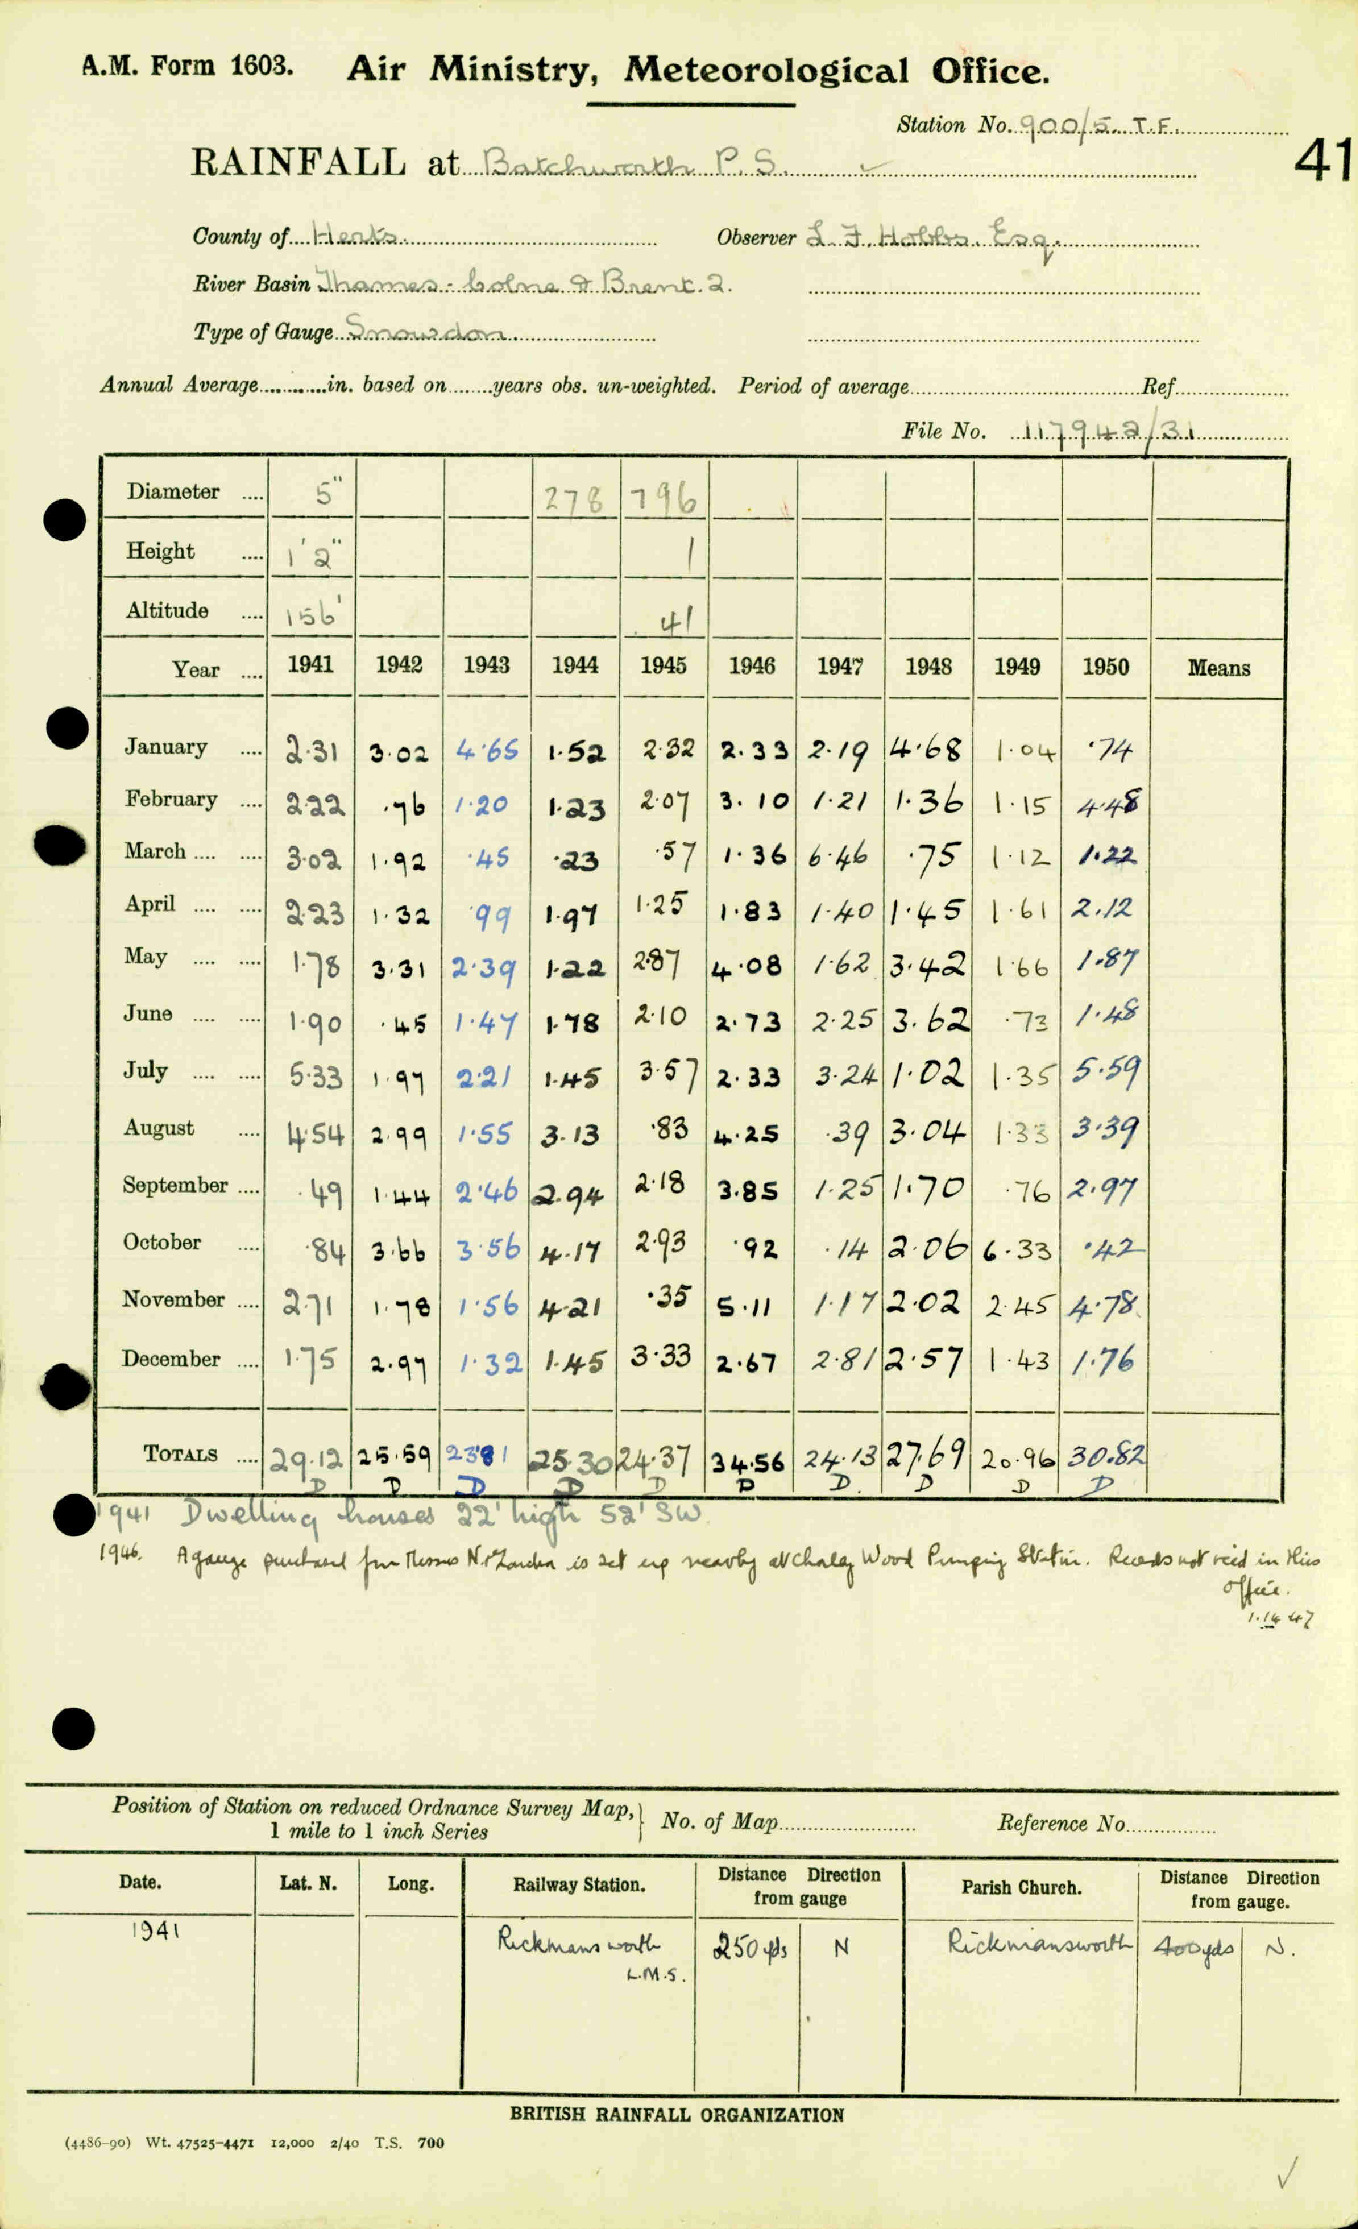 A.M. Form 1603. Air Ministry, Meteorological Office.
Station No. 900/5. T.F.
41
RAINFALL at Batchworth P.S. ✓
County of Herts. Observer L. F. Hobbs. Esq.
River Basin Thames - Colne & Brent. 2.
Type of Gauge Snowdon
Annual Average............in. based on........years obs. un-weighted. Period of average.................Ref.................
File No. 117942/31
Diameter .... 5" 278 796
Height .... 1'2" 1
Altitude .... 156' 41
Year .... 1941 1942 1943 1944 1945 1946 1947 1948 1949 1950 Means
January .... 2.31 3.02 4.65 1.52 2.32 2.33 2.19 4.68 1.04 .74
February .... 2.22 .76 1.20 1.23 2.07 3.10 1.21 1.36 1.15 4.48
March .... .... 3.02 1.92 .45 .23 .57 1.36 6.46 .75 1.12 1.22
April .... .... 2.23 1.32 .99 1.97 1.25 1.83 1.40 1.45 1.61 2.12
May .... .... 1.78 3.31 2.39 1.22 2.87 4.08 1.62 3.42 1.66 1.87
June .... .... 1.90 .45 1.47 1.78 2.10 2.73 2.25 3.62 .73 1.48
July .... .... 5.33 1.97 2.21 1.45 3.57 2.33 3.24 1.02 1.35 5.59
August .... 4.54 2.99 1.55 3.13 .83 4.25 .39 3.04 1.33 3.39
September .... .49 1.44 2.46 2.94 2.18 3.85 1.25 1.70 .76 2.97
October .... .84 3.66 3.56 4.17 2.93 .92 .14 2.06 6.33 .42
November .... 2.71 1.78 1.56 4.21 .35 5.11 1.17 2.02 2.45 4.78
December .... 1.75 2.97 1.32 1.45 3.33 2.67 2.81 2.57 1.43 1.76
TOTALS .... 29.12 25.59 23.81 25.30 24.37 34.56 24.13 27.69 20.96 30.82
D D D D D D D. D D D
1941 Dwelling houses 22' high 52' SW.
1946. A gauge purchased from Messrs N. & Zambra is set up nearby at Chorley Wood Pumping Station. Records not recd in this
office.
47
Position of Station on reduced Ordnance Survey Map,} No. of Map........................ Reference No................
1 mile to 1 inch Series
Date. Lat. N. Long. Railway Station. Distance Direction from gauge Parish Church. Distance Direction from gauge.
1941 Rickmansworth L.M.S. 250 yds N Rickmansworth 400 yds N.
BRITISH RAINFALL ORGANIZATION
(4486-90) Wt. 47525-4471 12,000 2/40 T.S. 700
✓